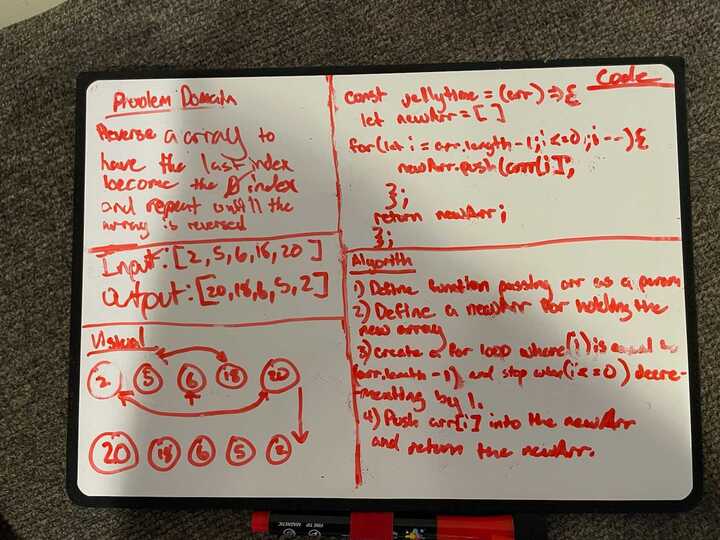 Problem Domain
Reverse a array to
have the last index
become the 0 index
and repeat untill the
array is reversed
Input: [2, 5, 6, 18, 20]
Output: [20, 18, 6, 5, 2]
Visual
2 5 6 18 20
20 18 6 5 2
Code
const jellytime = (arr) => {
let newArr = [ ]
for(let i = arr.length - 1; i <= 0; i --){
newArr.push (arr[i]);
};
return newArr;
};
Algorith
1) Define function passing arr as a param
2) Define a newArr for holding the
new array
3) create a for loop where (i) is equal to
(arr.length - 1) and stop when (i <= 0) decre-
-menting by 1.
4) Push arr[i] into the newArr
and return the newArr.
FINE TIP MAGNETIC